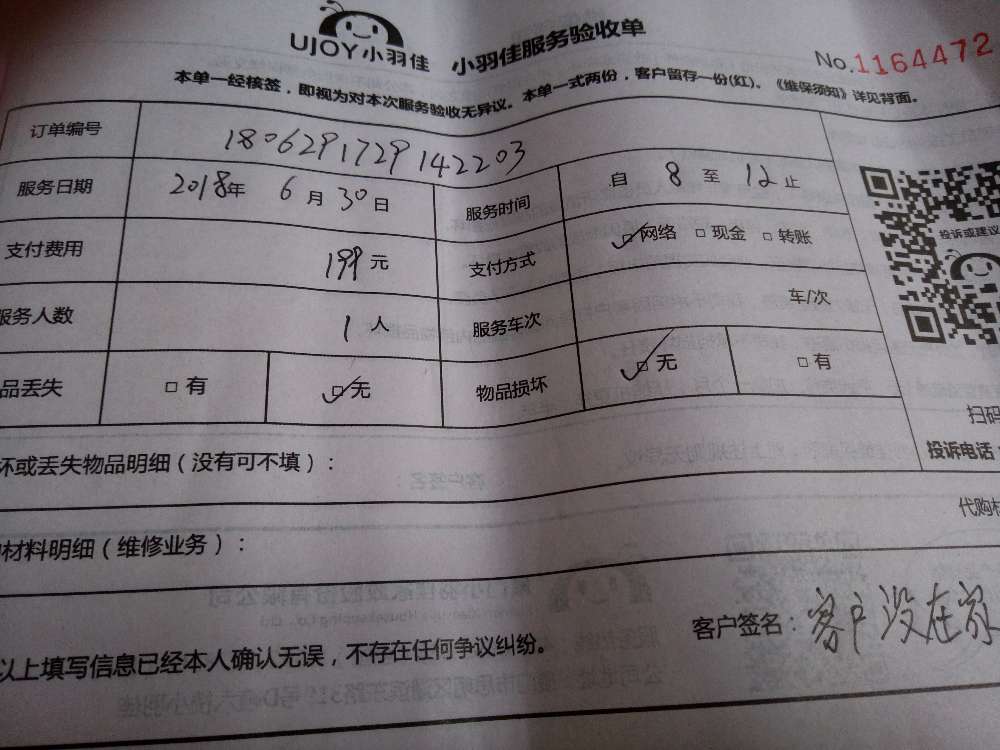 UJOY小羽佳 小羽佳服务验收单
No.1164472
本单一经核签，即视为对本次服务验收无异议。本单一式两份，客户留存一份(红)。《维保须知》详见背面。
订单编号 180629172914 2203
服务日期 2018年 6月30日 服务时间 自 8 至 12 止
支付费用 199元 支付方式 □网络 □现金 □转账
服务人数 1人 服务车次 车/次
品丢失 □有 □无 物品损坏 □无 □有
投诉或建议
扫码
投诉电话
坏或丢失物品明细（没有可不填）：
代购材
材料明细（维修业务）：
以上填写信息已经本人确认无误，不存在任何争议纠纷。
客户签名：客户没在家